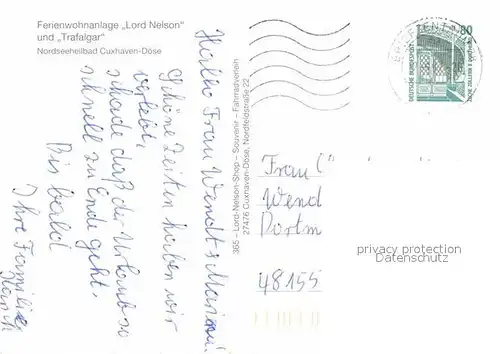 Ferienwohnanlage „Lord Nelson"
und „Trafalgar"
Nordseeheilbad Cuxhaven-Döse
Hallo Frau Wendt +
schöne Zeiten haben wir
verlebt,
schade daß der Urlaub so
schnell zu Ende geht.
Bis bald
Ihre Familie
365 – Lord-Nelson-Shop – Souvenir – Fahrradverleih
27476 Cuxhaven-Döse, Nordfeldstraße 22
80
DEUTSCHE BUNDESPOST
Frau
Wend
Dortm
48155
privacy protection
Datenschutz